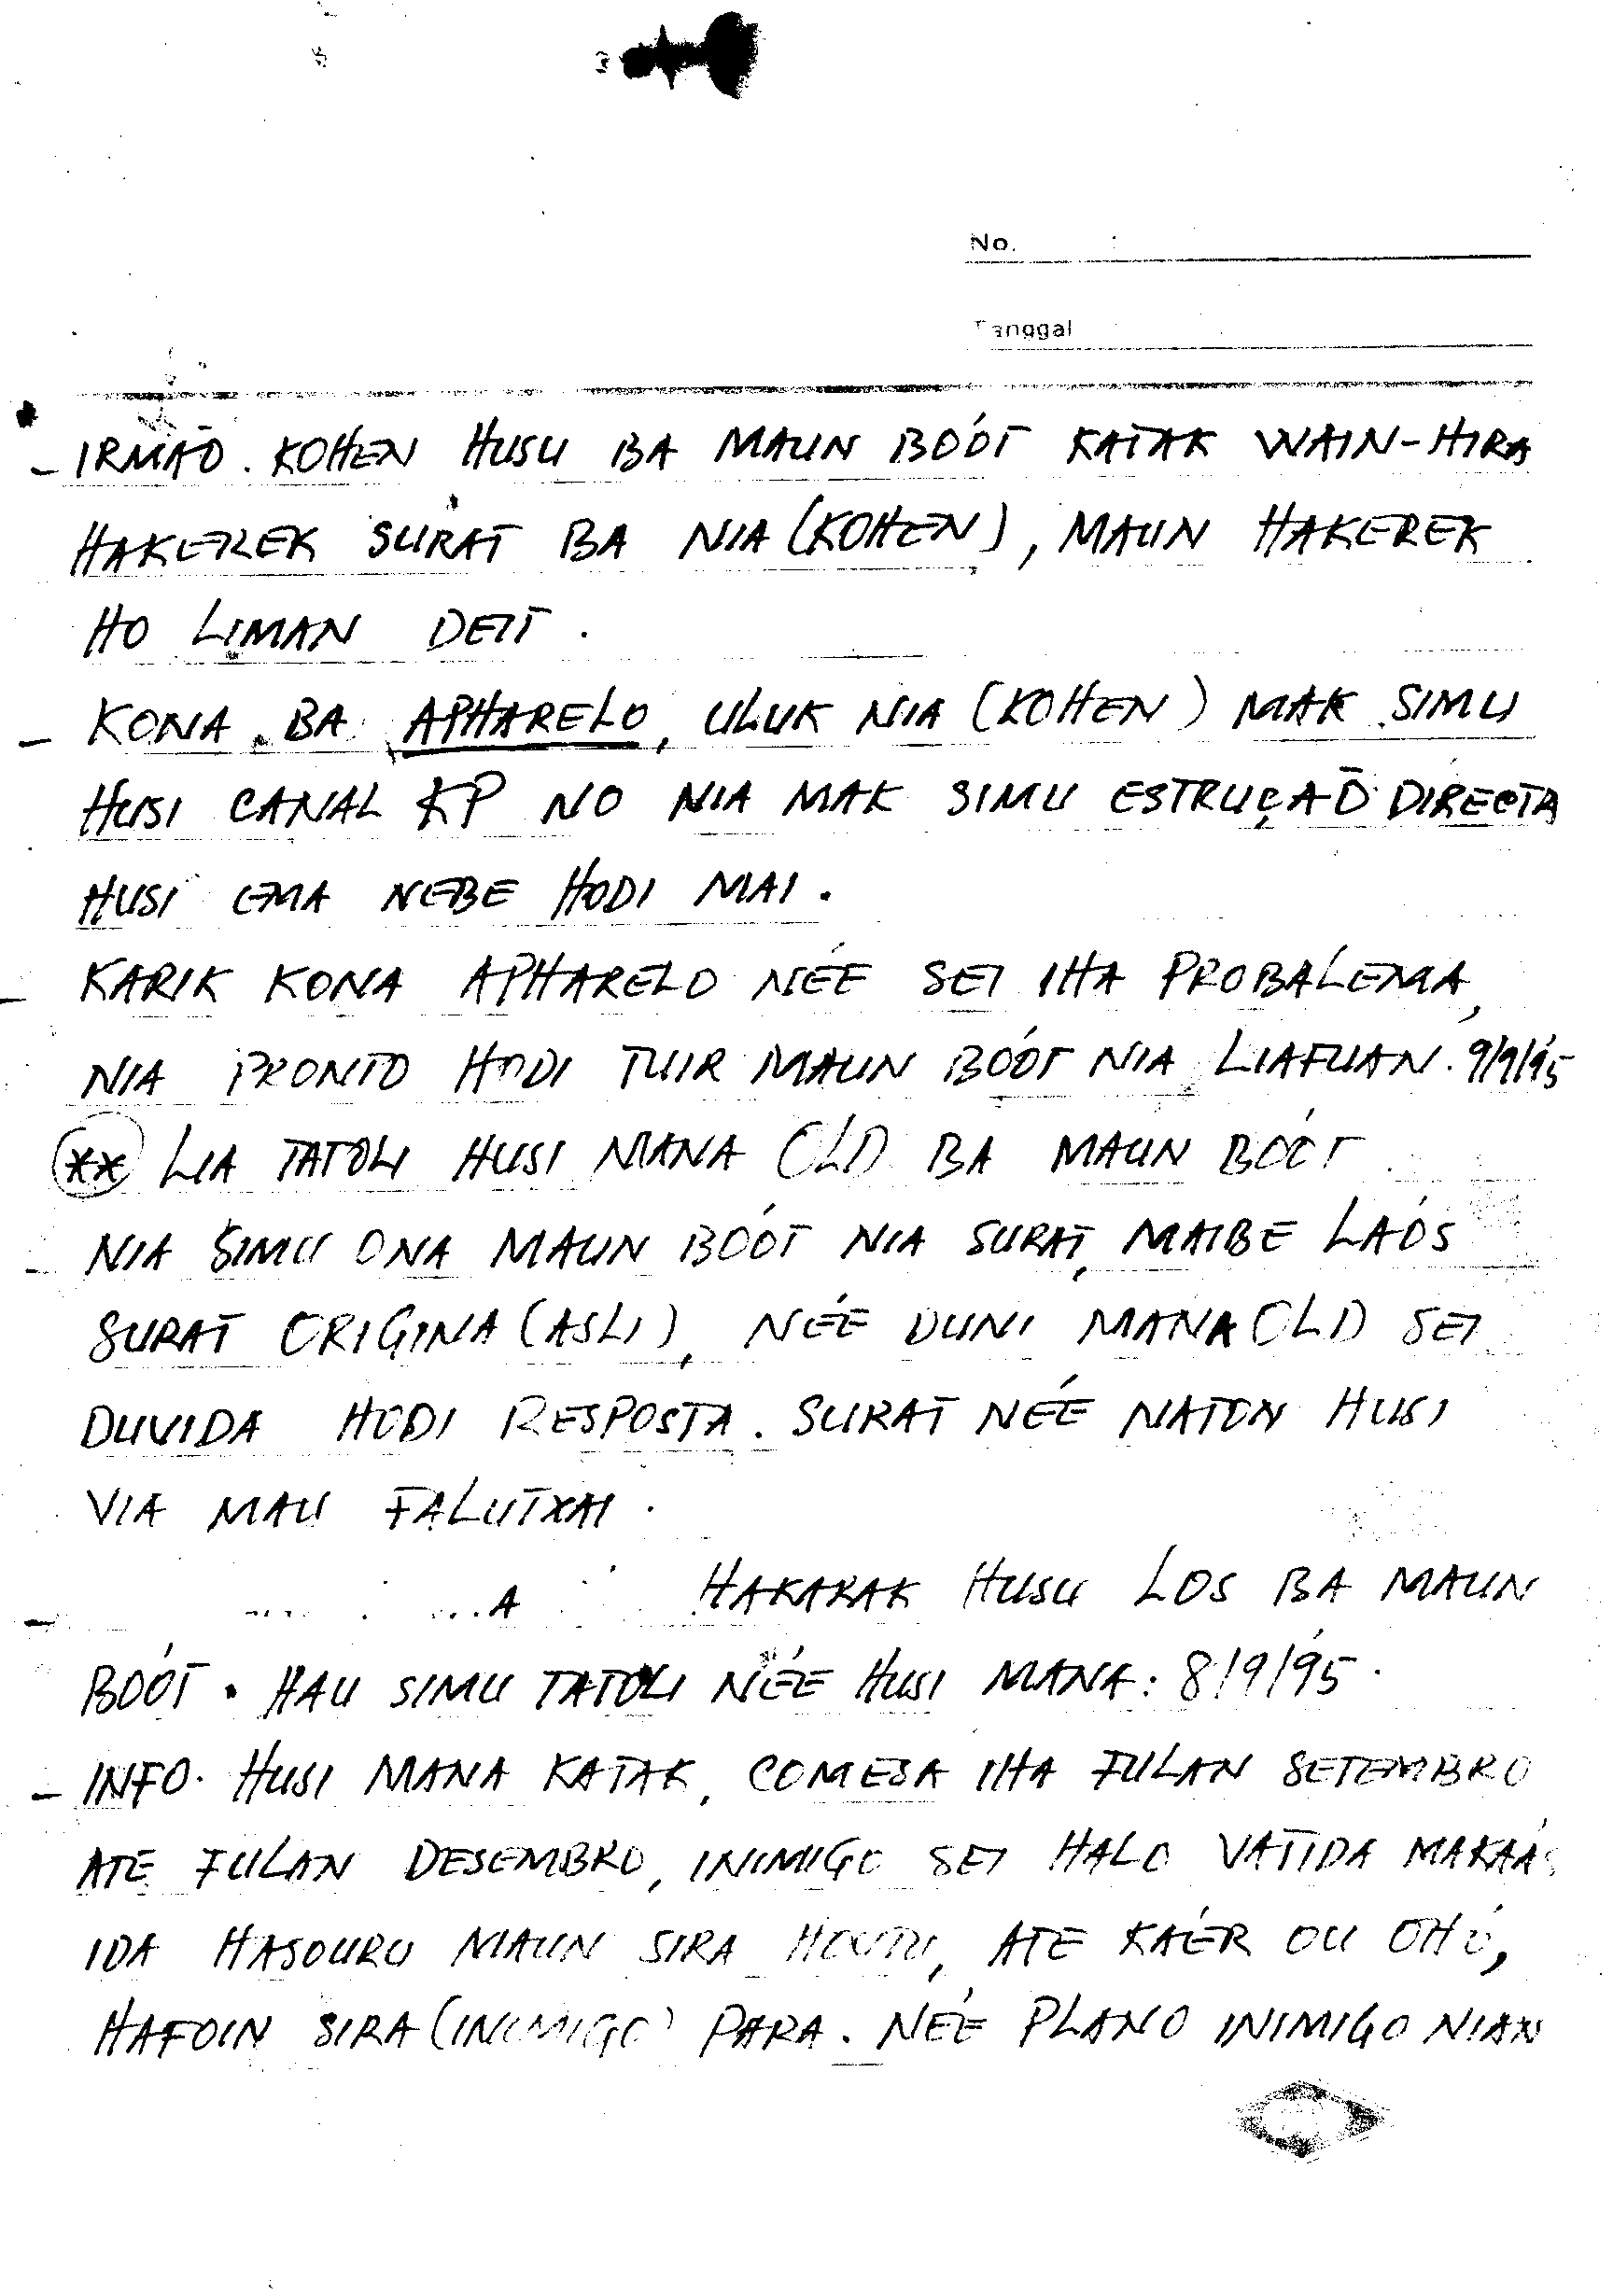 No. :
Tanggal :
- IRMAÕ. KOHEN HUSU BA MAUN BOÓT KATAK WAIN-HIRA
HAKEREK SURAT BA NIA (KOHEN), MAUN HAKEREK
HO LIMAN DEIT.
- KONA BA APHARELO, ULUK NIA (KOHEN) MAK SIMU
HUSI CANAL KP NO NIA MAK SIMU ESTRUÇAÕ DIRECTA
HUSI EMA NEBE HODI MAI.
- KARIK KONA APHARELO NÉE SEI IHA PROBALEMA,
NIA PRONTO HODI TUIR MAUN BOÓT NIA LIAFUAN. 9/9/95
(XX) LIA TATOLI HUSI MANA OLD BA MAUN BOÓT
- NIA SIMU ONA MAUN BOÓT NIA SURAT, MAIBE LAÓS
SURAT ORIGINA (ASLI), NÉE DUNI MANA OLD SEI
DUVIDA HODI RESPOSTA. SURAT NÉE NATON HUSI
VIA MAU FALUTXAI.
- HAKARAK HUSU LOS BA MAUN
BOÓT. HAU SIMU TATOLI NÉE HUSI MANA: 8/9/95.
- INFO. HUSI MANA KATAK, COMESA IHA FULAN SETEMBRO
ATE FULAN DESEMBRO, INIMIGO SEI HALO VATIDA MAKAÁS
IDA HASOURU MAUN SIRA HOUTU, ATE KAÉR OU OHÓ,
HAFOIN SIRA (INIMIGO) PARA. NÉE PLANO INIMIGO NIAN